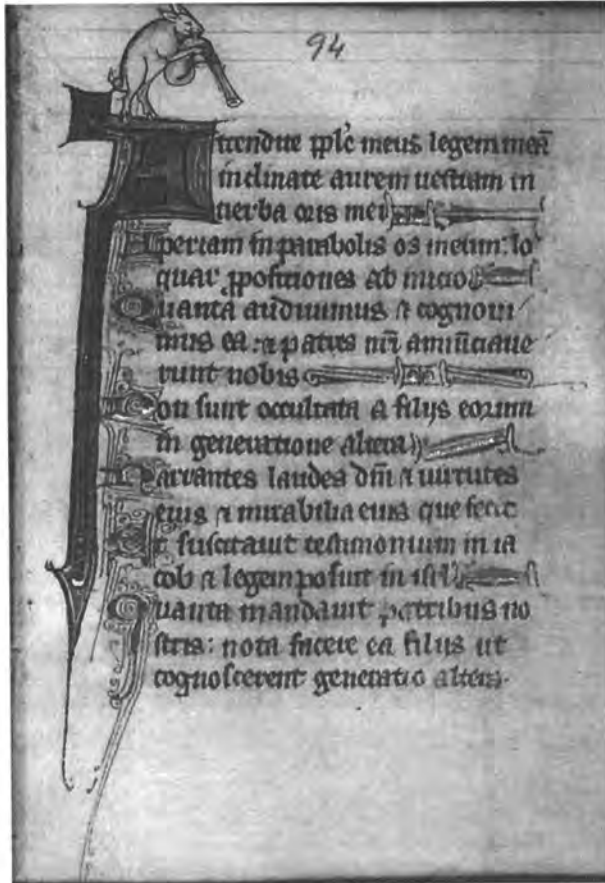 94
Attendite pplẽ meus legem meã
inclinate aurem uestram in
uerba oris mei
Aperiam in parabolis os meum: lo
quar ꝓpositiones ab inicio
Quanta audiuimus ⁊ cognoui
mus ea: ⁊ patres nr̃i annũciaue
runt nobis
Non sunt occultata a filijs eorum
in generatione altera
Narrantes laudes dñi ⁊ uirtutes
eius ⁊ mirabilia eius que fecit
Et suscitauit testimonium in ia
cob ⁊ legem posuit in isrl̃
Quanta mandauit patribus no
stris: nota facere ea filijs ut
cognoscerent generatio altera.